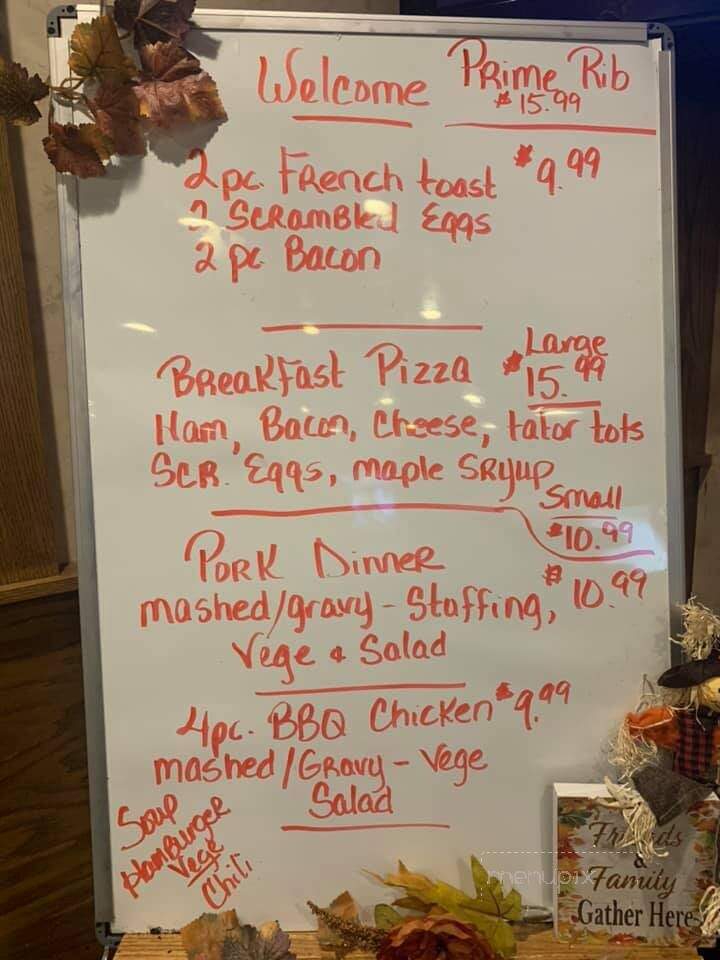 Welcome Prime Rib
$15.99
2pc. French toast $9.99
2 Scrambled Eggs
2 pc Bacon
Breakfast Pizza Large $15.99
Ham, Bacon, Cheese, tator tots
Scr. Eggs, maple Sryup
Small
$10.99
Pork Dinner
mashed/gravy - Staffing, $10.99
Vege & Salad
4pc. BBQ Chicken $9.99
mashed/Gravy - Vege
Salad
Soup
Hamburger
Vege
Chili
Friends
&
Family
Gather Here
menupix